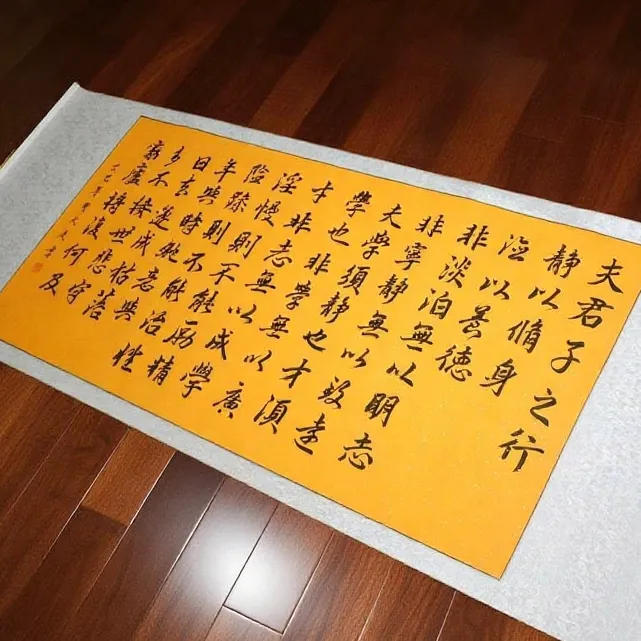 夫君子之行
靜以脩身
儉以養德
非淡泊無以明志
非寧靜無以致遠
夫學須靜也才須
學也非學無以廣
才非志無以成學
淫慢則不能勵精
險躁則不能治性
年與時馳意與
日去遂成枯落
多不接世悲守
窮廬將復何及